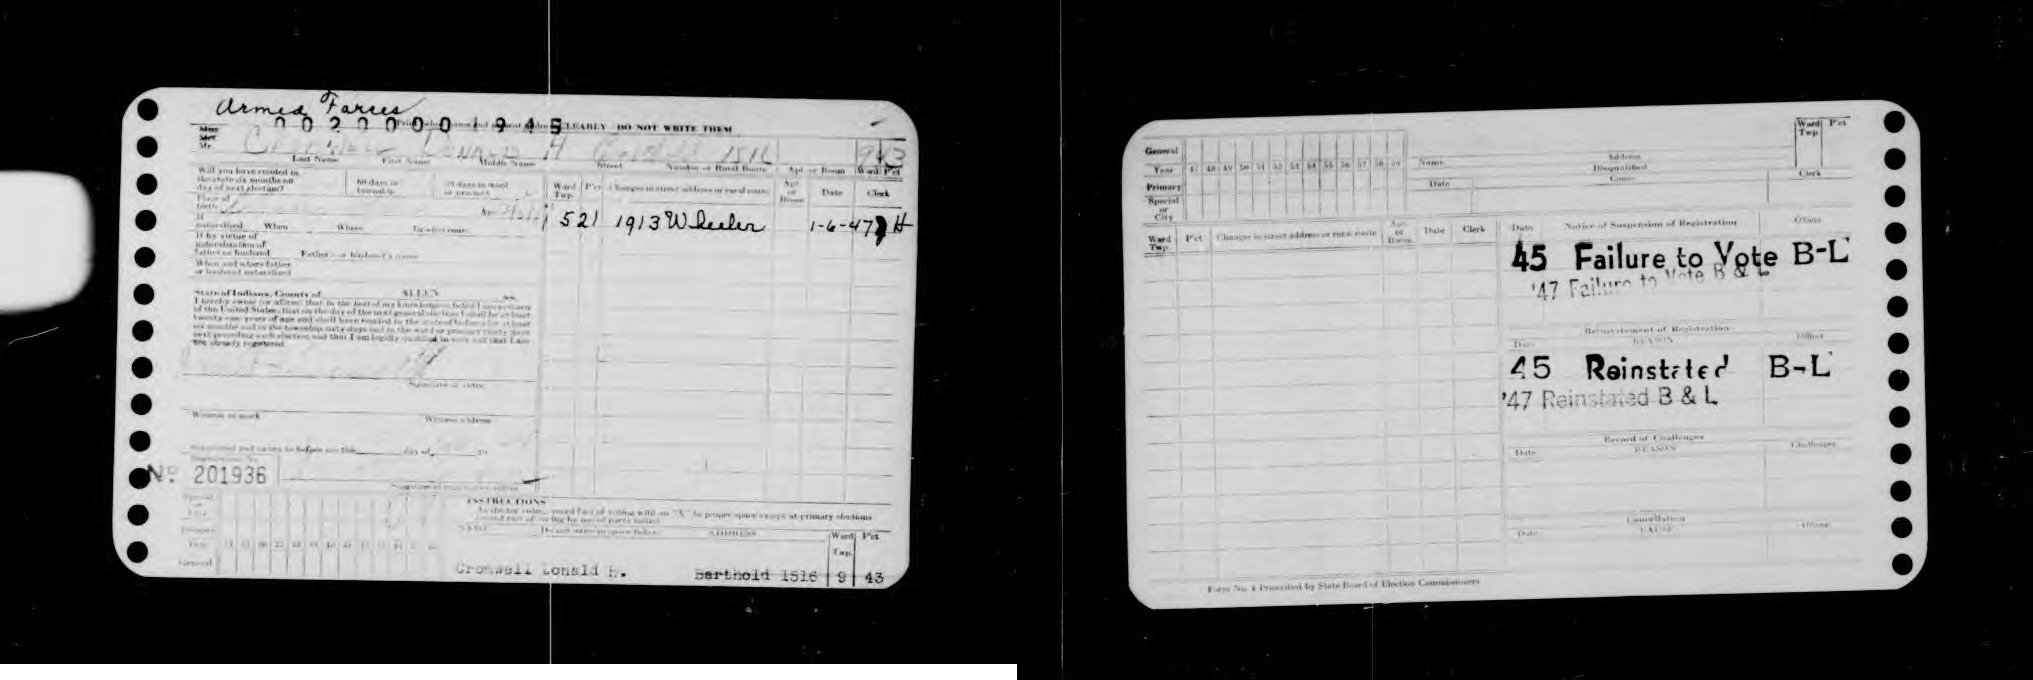 Armed Forces
0020000 1945
CLEARLY - DO NOT WRITE THEM
Miss
Mrs.
Mr.
Cromwell Donald H Barthold 1516 9 43
Last Name First Name Middle Name Street Number or Rural Route Apt. or Room Ward P'ct
Will you have resided in
the state six months on
day of next election?
60 days in
township
30 days in ward
or precinct
Ward
Twp.
P'ct
Changes in street address or rural route
Apt.
or
Room
Date
Clerk
Place of
birth
5 21 1913 Wheeler 1-6-47 H
If
naturalized When Where In what court
If by virtue of
naturalization of
father or husband Father's or husband's name
When and where father
or husband naturalized
State of Indiana, County of ALLEN ss.
I hereby swear (or affirm) that to the best of my knowledge and belief I am a citizen
of the United States, that on the day of the next general election I shall be at least
twenty-one years of age and shall have resided in the state of Indiana for at least
six months and in the township sixty days and in the ward or precinct thirty days
next preceding such election and that I am legally qualified to vote and that I am
not already registered.
Signature of voter
Witness to mark Witness address
Subscribed and sworn to before me this day of 19
Registration No.
No 201936
Special
or
City
Primary
Year
General
INSTRUCTIONS
As elector votes, record fact of voting with an "X" in proper space except at primary elections
record fact of voting by use of party initial
NAME Do not write in space below ADDRESS Ward
Twp. P'ct
Cromwell Donald H. Barthold 1516 9 43
General
Year 47 48 49 50 51 52 53 54 55 56 57 58 59
Primary
Special
or
City
Name Address
Disqualified
Date Cause Clerk
Ward
Twp. P'ct
Ward
Twp. P'ct Changes in street address or rural route Apt.
or
Room Date Clerk
Date Notice of Suspension of Registration Officer
45 Failure to Vote B-L
'47 Failure to Vote B & L
Reinstatement of Registration
Date REASON Officer
45 Reinstated B-L
'47 Reinstated B & L
Record of Challenges
Date REASON Challenger
Cancellation
Date CAUSE Officer
Form No. 4 Prescribed by State Board of Election Commissioners